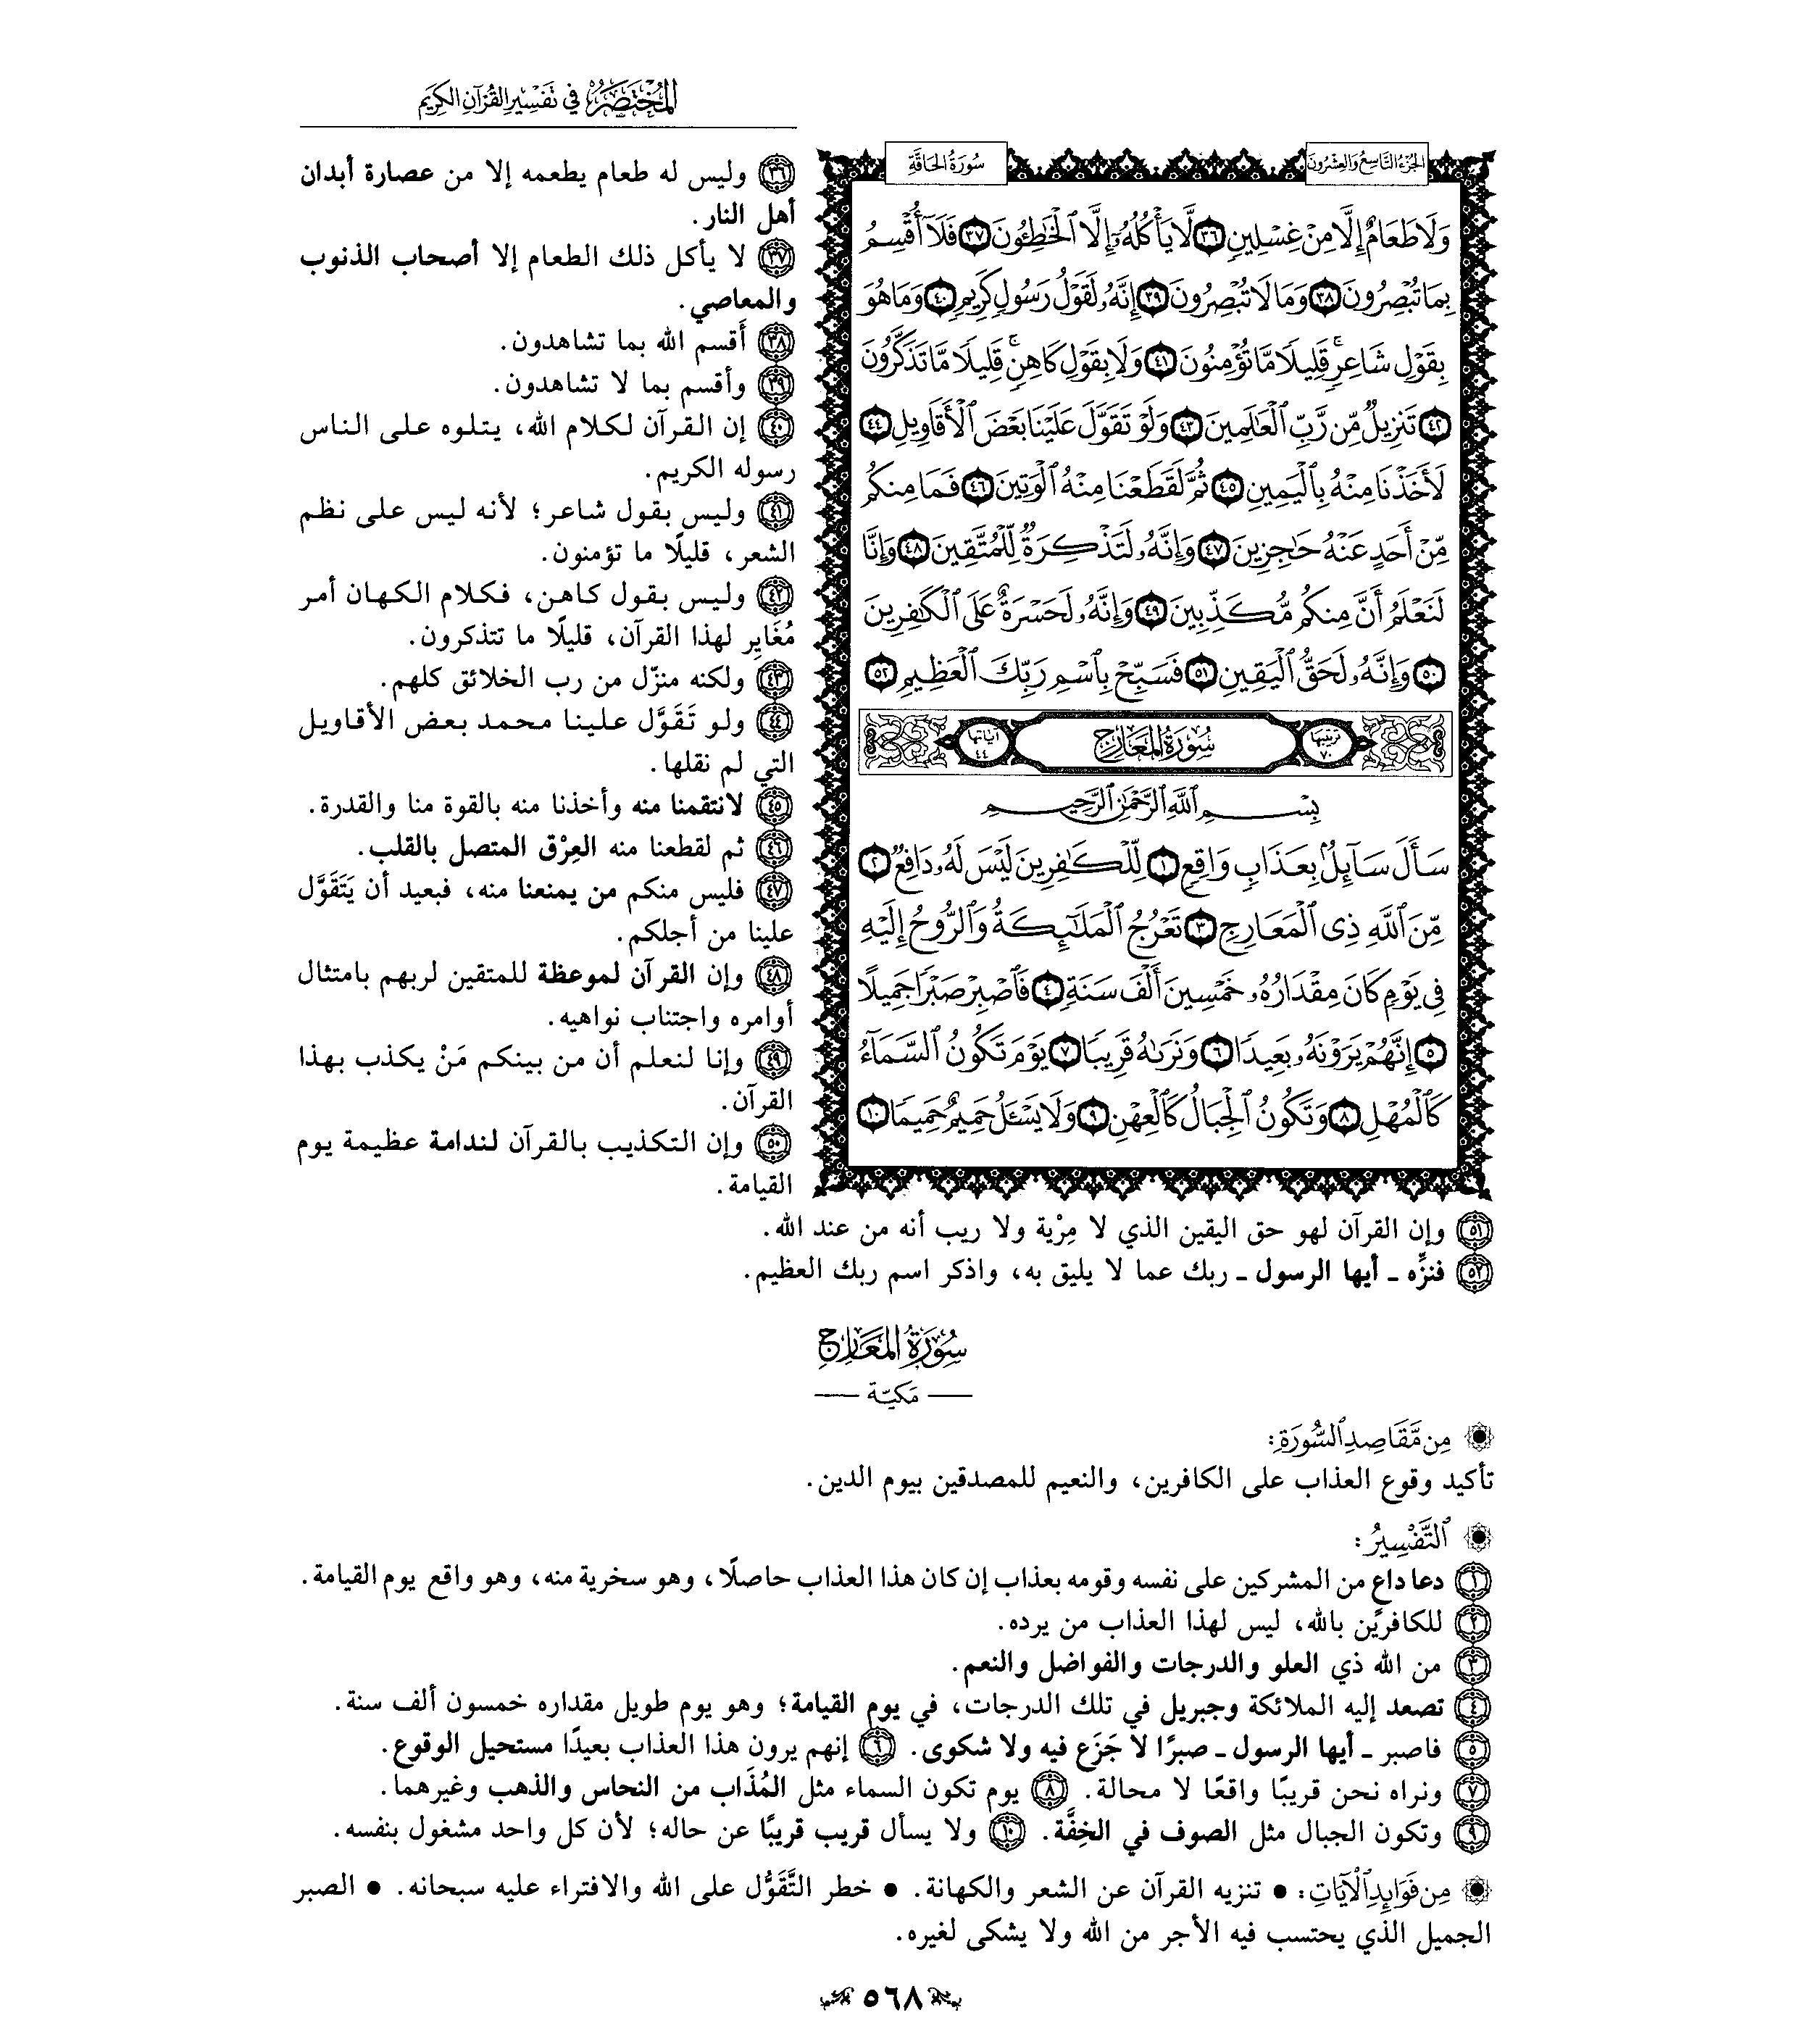 المختصر في تفسير القرآن الكريم
الجزء التاسع والعشرون
سورة الحاقة
وَلَا طَعَامٌ إِلَّا مِنْ غِسْلِينٍ ٣٦ لَّا يَأْكُلُهُۥٓ إِلَّا ٱلْخَٰطِـُٔونَ ٣٧ فَلَآ أُقْسِمُ
بِمَا تُبْصِرُونَ ٣٨ وَمَا لَا تُبْصِرُونَ ٣٩ إِنَّهُۥ لَقَوْلُ رَسُولٍ كَرِيمٍ ٤٠ وَمَا هُوَ
بِقَوْلِ شَاعِرٍ ۚ قَلِيلًا مَّا تُؤْمِنُونَ ٤١ وَلَا بِقَوْلِ كَاهِنٍ ۚ قَلِيلًا مَّا تَذَكَّرُونَ
٤٢ تَنزِيلٌ مِّن رَّبِّ ٱلْعَٰلَمِينَ ٤٣ وَلَوْ تَقَوَّلَ عَلَيْنَا بَعْضَ ٱلْأَقَاوِيلِ ٤٤
لَأَخَذْنَا مِنْهُ بِٱلْيَمِينِ ٤٥ ثُمَّ لَقَطَعْنَا مِنْهُ ٱلْوَتِينَ ٤٦ فَمَا مِنكُم
مِّنْ أَحَدٍ عَنْهُ حَٰجِزِينَ ٤٧ وَإِنَّهُۥ لَتَذْكِرَةٌ لِّلْمُتَّقِينَ ٤٨ وَإِنَّا
لَنَعْلَمُ أَنَّ مِنكُم مُّكَذِّبِينَ ٤٩ وَإِنَّهُۥ لَحَسْرَةٌ عَلَى ٱلْكَٰفِرِينَ
٥٠ وَإِنَّهُۥ لَحَقُّ ٱلْيَقِينِ ٥١ فَسَبِّحْ بِٱسْمِ رَبِّكَ ٱلْعَظِيمِ ٥٢
ترتيبها ٧٠ سورة المعارج آياتها ٤٤
بِسْمِ ٱللَّهِ ٱلرَّحْمَٰنِ ٱلرَّحِيمِ
سَأَلَ سَآئِلٌۢ بِعَذَابٍ وَاقِعٍ ١ لِّلْكَٰفِرِينَ لَيْسَ لَهُۥ دَافِعٌ ٢
مِّنَ ٱللَّهِ ذِى ٱلْمَعَارِجِ ٣ تَعْرُجُ ٱلْمَلَٰٓئِكَةُ وَٱلرُّوحُ إِلَيْهِ
فِى يَوْمٍ كَانَ مِقْدَارُهُۥ خَمْسِينَ أَلْفَ سَنَةٍ ٤ فَٱصْبِرْ صَبْرًا جَمِيلًا
٥ إِنَّهُمْ يَرَوْنَهُۥ بَعِيدًا ٦ وَنَرَىٰهُ قَرِيبًا ٧ يَوْمَ تَكُونُ ٱلسَّمَآءُ
كَٱلْمُهْلِ ٨ وَتَكُونُ ٱلْجِبَالُ كَٱلْعِهْنِ ٩ وَلَا يَسْـَٔلُ حَمِيمٌ حَمِيمًا ١٠
٣٦ وليس له طعام يطعمه إلا من عصارة أبدان
أهل النار.
٣٧ لا يأكل ذلك الطعام إلا أصحاب الذنوب
والمعاصي.
٣٨ أَقسم الله بما تشاهدون.
٣٩ وأقسم بما لا تشاهدون.
٤٠ إن القرآن لكلام الله، يتلوه على الناس
رسوله الكريم.
٤١ وليس بقول شاعر؛ لأنه ليس على نظم
الشعر، قليلًا ما تؤمنون.
٤٢ وليس بقول كاهن، فكلام الكهان أمر
مُغَايِر لهذا القرآن، قليلًا ما تتذكرون.
٤٣ ولكنه منزّل من رب الخلائق كلهم.
٤٤ ولو تَقَوَّل علينا محمد بعض الأقاويل
التي لم نقلها.
٤٥ لانتقمنا منه وأخذنا منه بالقوة منا والقدرة.
٤٦ ثم لقطعنا منه العِرْق المتصل بالقلب.
٤٧ فليس منكم من يمنعنا منه، فبعيد أن يَتَقَوَّل
علينا من أجلكم.
٤٨ وإن القرآن لموعظة للمتقين لربهم بامتثال
أوامره واجتناب نواهيه.
٤٩ وإنا لنعلم أن من بينكم مَنْ يكذب بهذا
القرآن.
٥٠ وإن التكذيب بالقرآن لندامة عظيمة يوم
القيامة.
٥١ وإن القرآن لهو حق اليقين الذي لا مِرْية ولا ريب أنه من عند الله.
٥٢ فنزِّه ـ أيها الرسول ـ ربك عما لا يليق به، واذكر اسم ربك العظيم.
سورة المعارج
— مكيّة —
من مقاصد السورة:
تأكيد وقوع العذاب على الكافرين، والنعيم للمصدقين بيوم الدين.
التفسير:
١ دعا داعٍ من المشركين على نفسه وقومه بعذاب إن كان هذا العذاب حاصلًا، وهو سخرية منه، وهو واقع يوم القيامة.
٢ للكافرين بالله، ليس لهذا العذاب من يرده.
٣ من الله ذي العلو والدرجات والفواضل والنعم.
٤ تصعد إليه الملائكة وجبريل في تلك الدرجات، في يوم القيامة؛ وهو يوم طويل مقداره خمسون ألف سنة.
٥ فاصبر ـ أيها الرسول ـ صبرًا لا جَزَع فيه ولا شكوى. ٦ إنهم يرون هذا العذاب بعيدًا مستحيل الوقوع.
٧ ونراه نحن قريبًا واقعًا لا محالة. ٨ يوم تكون السماء مثل المُذَاب من النحاس والذهب وغيرهما.
٩ وتكون الجبال مثل الصوف في الخِفَّة. ١٠ ولا يسأل قريب قريبًا عن حاله؛ لأن كل واحد مشغول بنفسه.
من فوائد الآيات: • تنزيه القرآن عن الشعر والكهانة. • خطر التَّقَوُّل على الله والافتراء عليه سبحانه. • الصبر
الجميل الذي يحتسب فيه الأجر من الله ولا يشكى لغيره.
٥٦٨